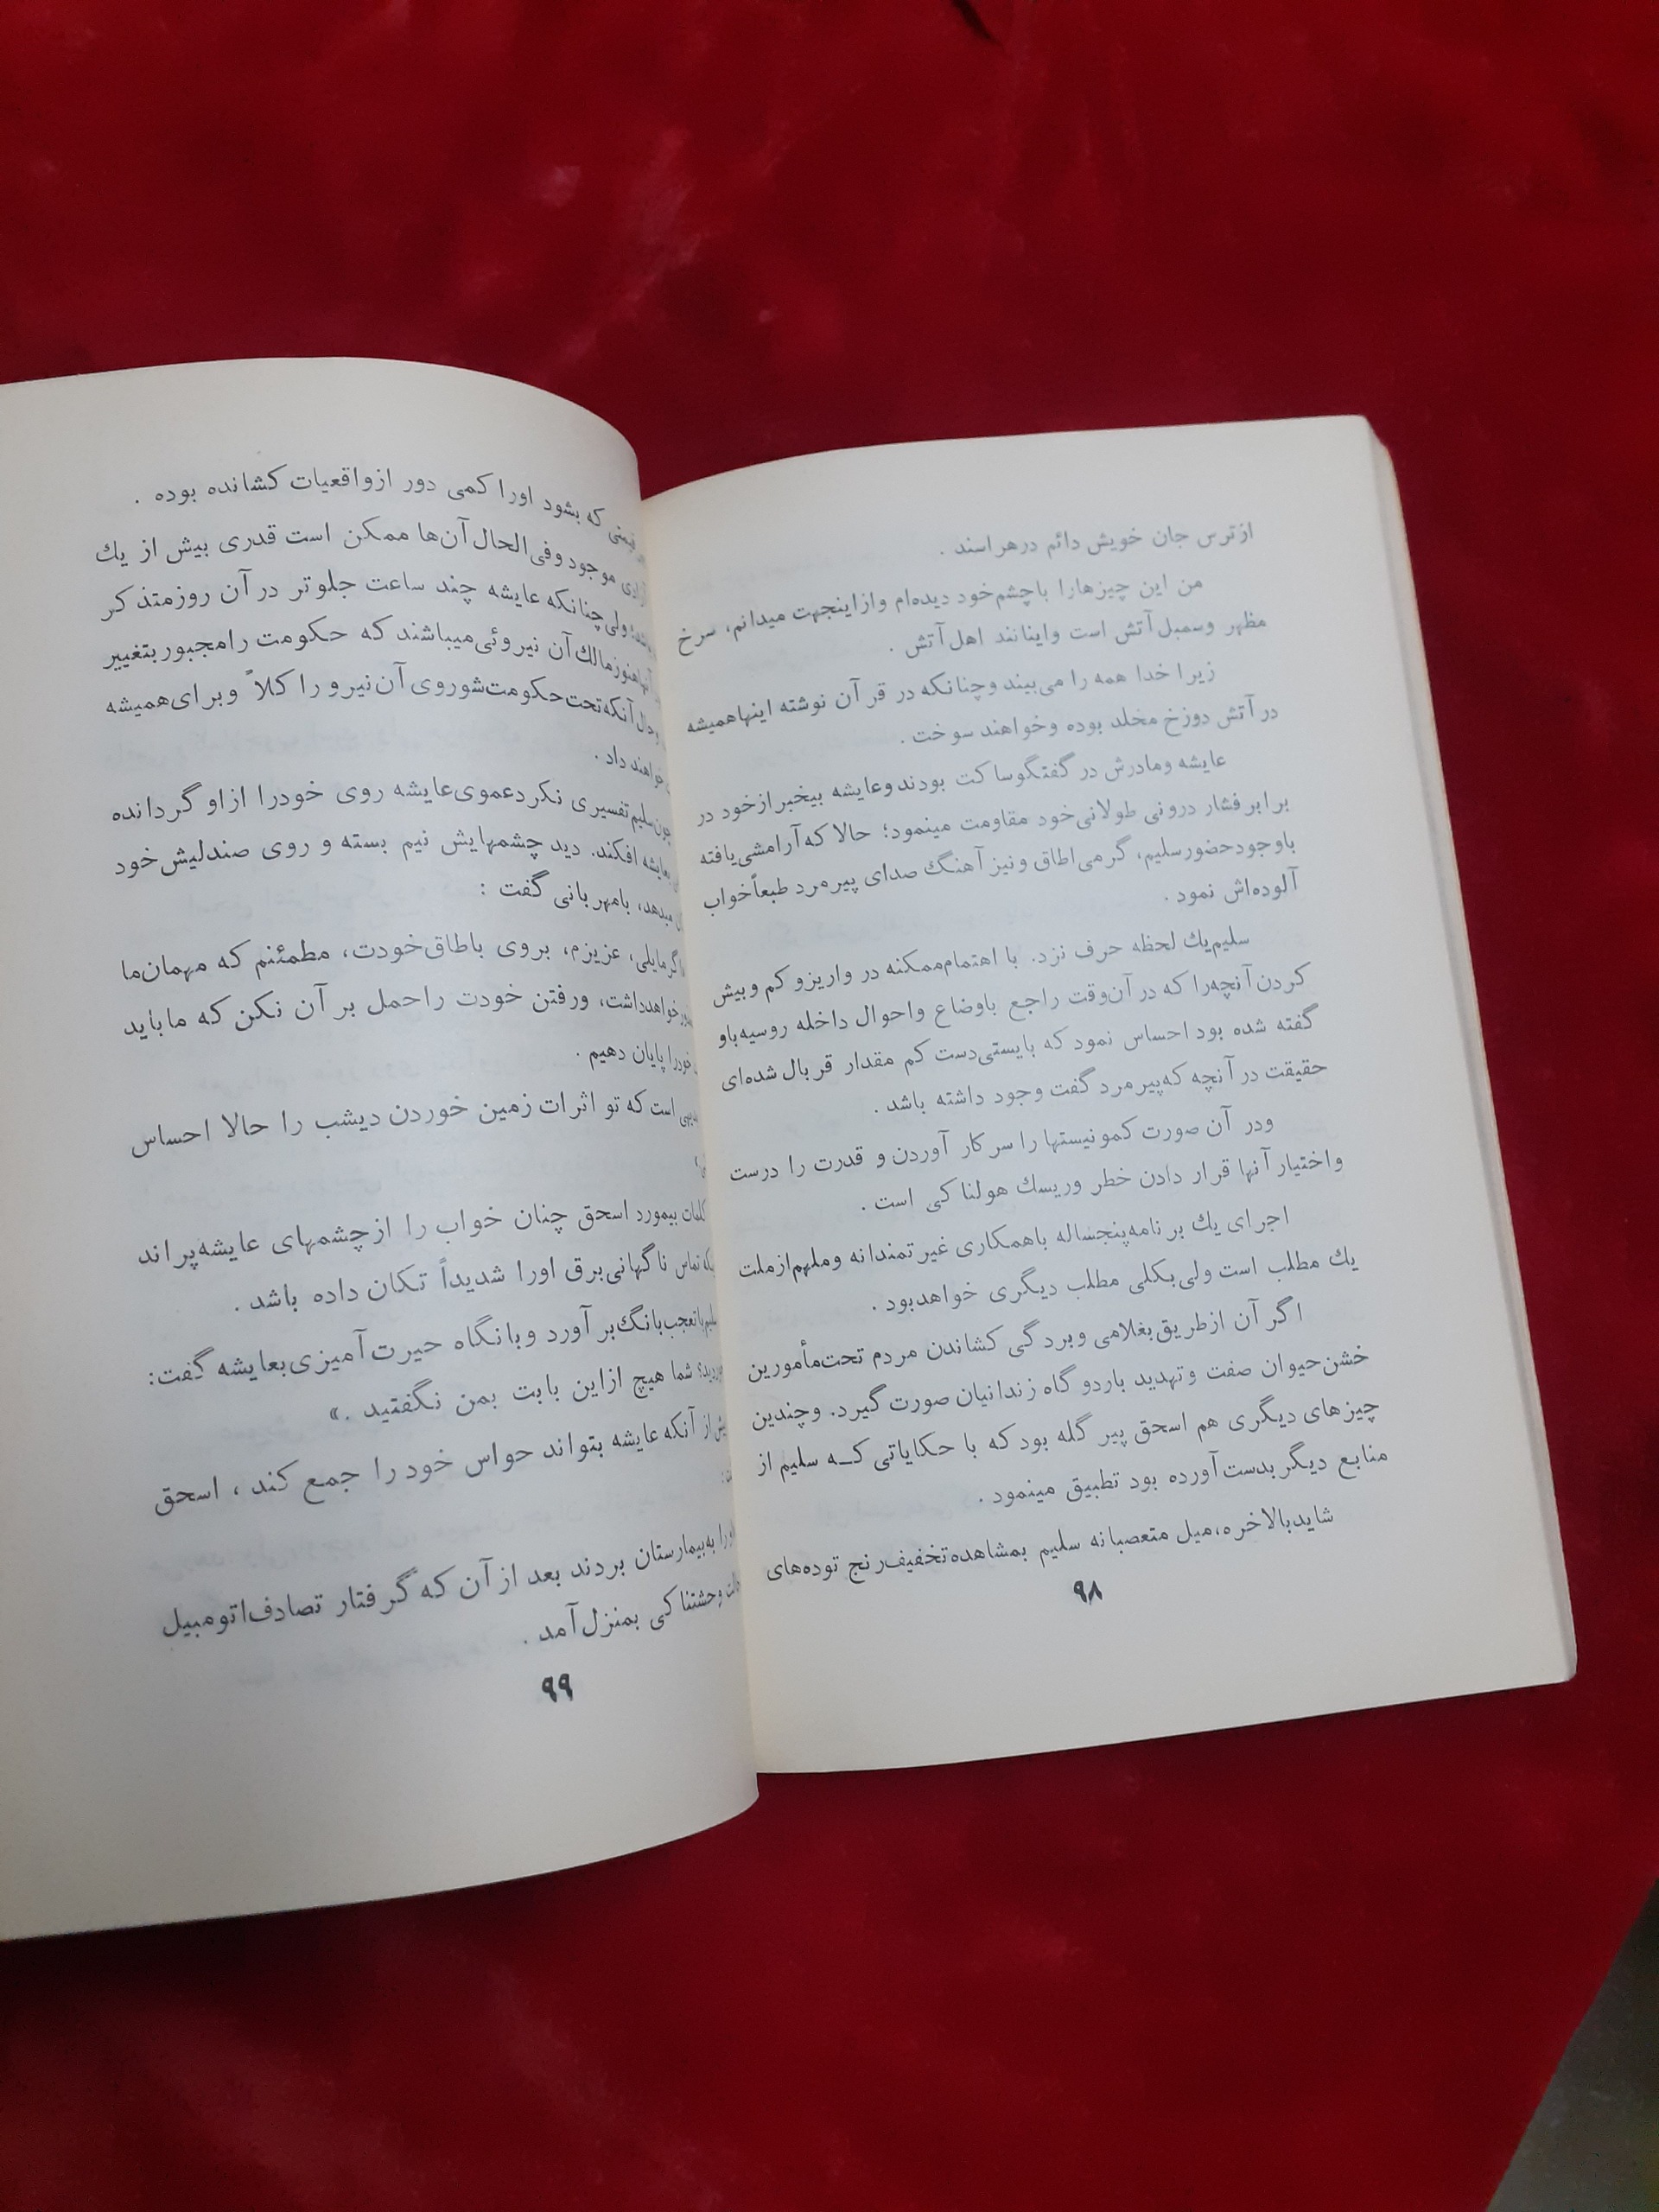 ازترس جان خویش دائم درهراسند .
من این چیزهارا باچشم‌خود دیده‌ام وازاینجهت میدانم، سرخ
مظهر وسمبل آتش است واینانند اهل آتش .
زیرا خدا همه را می‌بیند وچنانکه در قرآن نوشته اینهاهمیشه
در آتش دوزخ مخلد بوده وخواهند سوخت .
عایشه ومادرش در گفتگوساکت بودند وعایشه بیخبر ازخود در
برابر فشار درونی طولانی‌خود مقاومت مینمود؛ حالا که آرامشی‌یافته
باوجود حضور سلیم، گرمی اطاق ونیز آهنگ صدای پیرمرد طبعاً خواب
آلوده‌اش نمود .
سلیم‌یك لحظه حرف نزد. با اهتمام‌ممکنه در واریزو کم وبیش
کردن آنچه‌را که در آن‌وقت راجع باوضاع واحوال داخله روسیه‌باو
گفته شده بود احساس نمود که بایستی‌دست کم مقدار قربال شده‌ای
حقیقت در آنچه که‌پیرمرد گفت وجود داشته باشد .
ودر آن صورت کمونیستها را سرکار آوردن و قدرت را درست
واختیار آنها قرار دادن خطر وریسك هولناکی است .
اجرای یك برنامه‌پنجساله باهمکاری غیرتمندانه وملهم‌ازملت
یك مطلب است ولی‌بکلی مطلب دیگری خواهدبود .
اگر آن ازطریق‌بغلامی وبردگی کشاندن مردم تحت‌مأمورین
خشن‌حیوان صفت وتهدید باردوگاه زندانیان صورت گیرد. وچندین
چیزهای دیگری هم اسحق پیر گله بود که با حکایاتی کـه سلیم از
منابع دیگر بدست آورده بود تطبیق مینمود .
شایدبالاخره،میل متعصبانه سلیم بمشاهده‌تخفیف‌رنج توده‌های
۹۸
که بشود اورا کمی دور ازواقعیات کشانده بوده .
موجود وفی‌الحال آن‌ها ممکن است قدری بیش از یك
ولی چنانکه عایشه چند ساعت جلوتر در آن روزمتذکر
هنوزمالك آن نیروئی‌میباشند که حکومت رامجبور بتغییر
آنکه تحت‌حکومت‌شوروی آن‌نیرو را کلاً وبرای‌همیشه
خواهند داد .
چون‌سلیم تفسیری نکرد عموی‌عایشه روی خودرا ازاو گردانده
بعایشه افکند. دید چشمهایش نیم بسته و روی صندلیش خود
میدهد، بامهربانی گفت :
اگرمایلی، عزیزم، بروی باطاق‌خودت، مطمئنم که مهمان‌ما
خواهدداشت، ورفتن خودت راحمل بر آن نکن که ماباید
خودرا پایان دهیم .
است که تو اثرات زمین خوردن دیشب را حالا احساس
کلمات بیمورد اسحق چنان خواب را ازچشمهای عایشه‌پراند
تماس ناگهانی‌برق اورا شدیداً تکان داده باشد .
سلیم باتعجب‌بانگ‌بر آورد وبانگاه حیرت آمیزی‌بعایشه گفت:
شما هیچ ازاین بابت بمن نگفتید .»
پیش از آنکه عایشه بتواند حواس خود را جمع کند ، اسحق
اورا به‌بیمارستان بردند بعد از آن که گرفتار تصادف‌اتومبیل
وحشتناکی بمنزل آمد .
۹۹